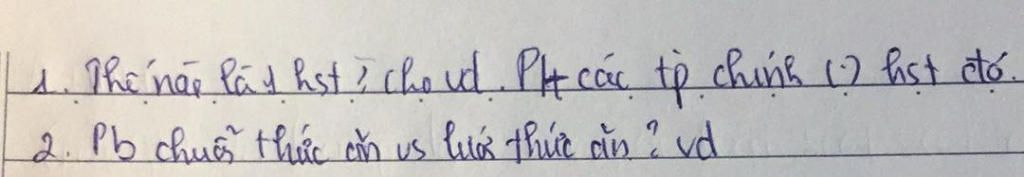 1. Thế nào là 1 hst? cho vd. Pt các tp chính () hst đó.
2. Pb chuỗi thức ăn vs lưới thức ăn? vd